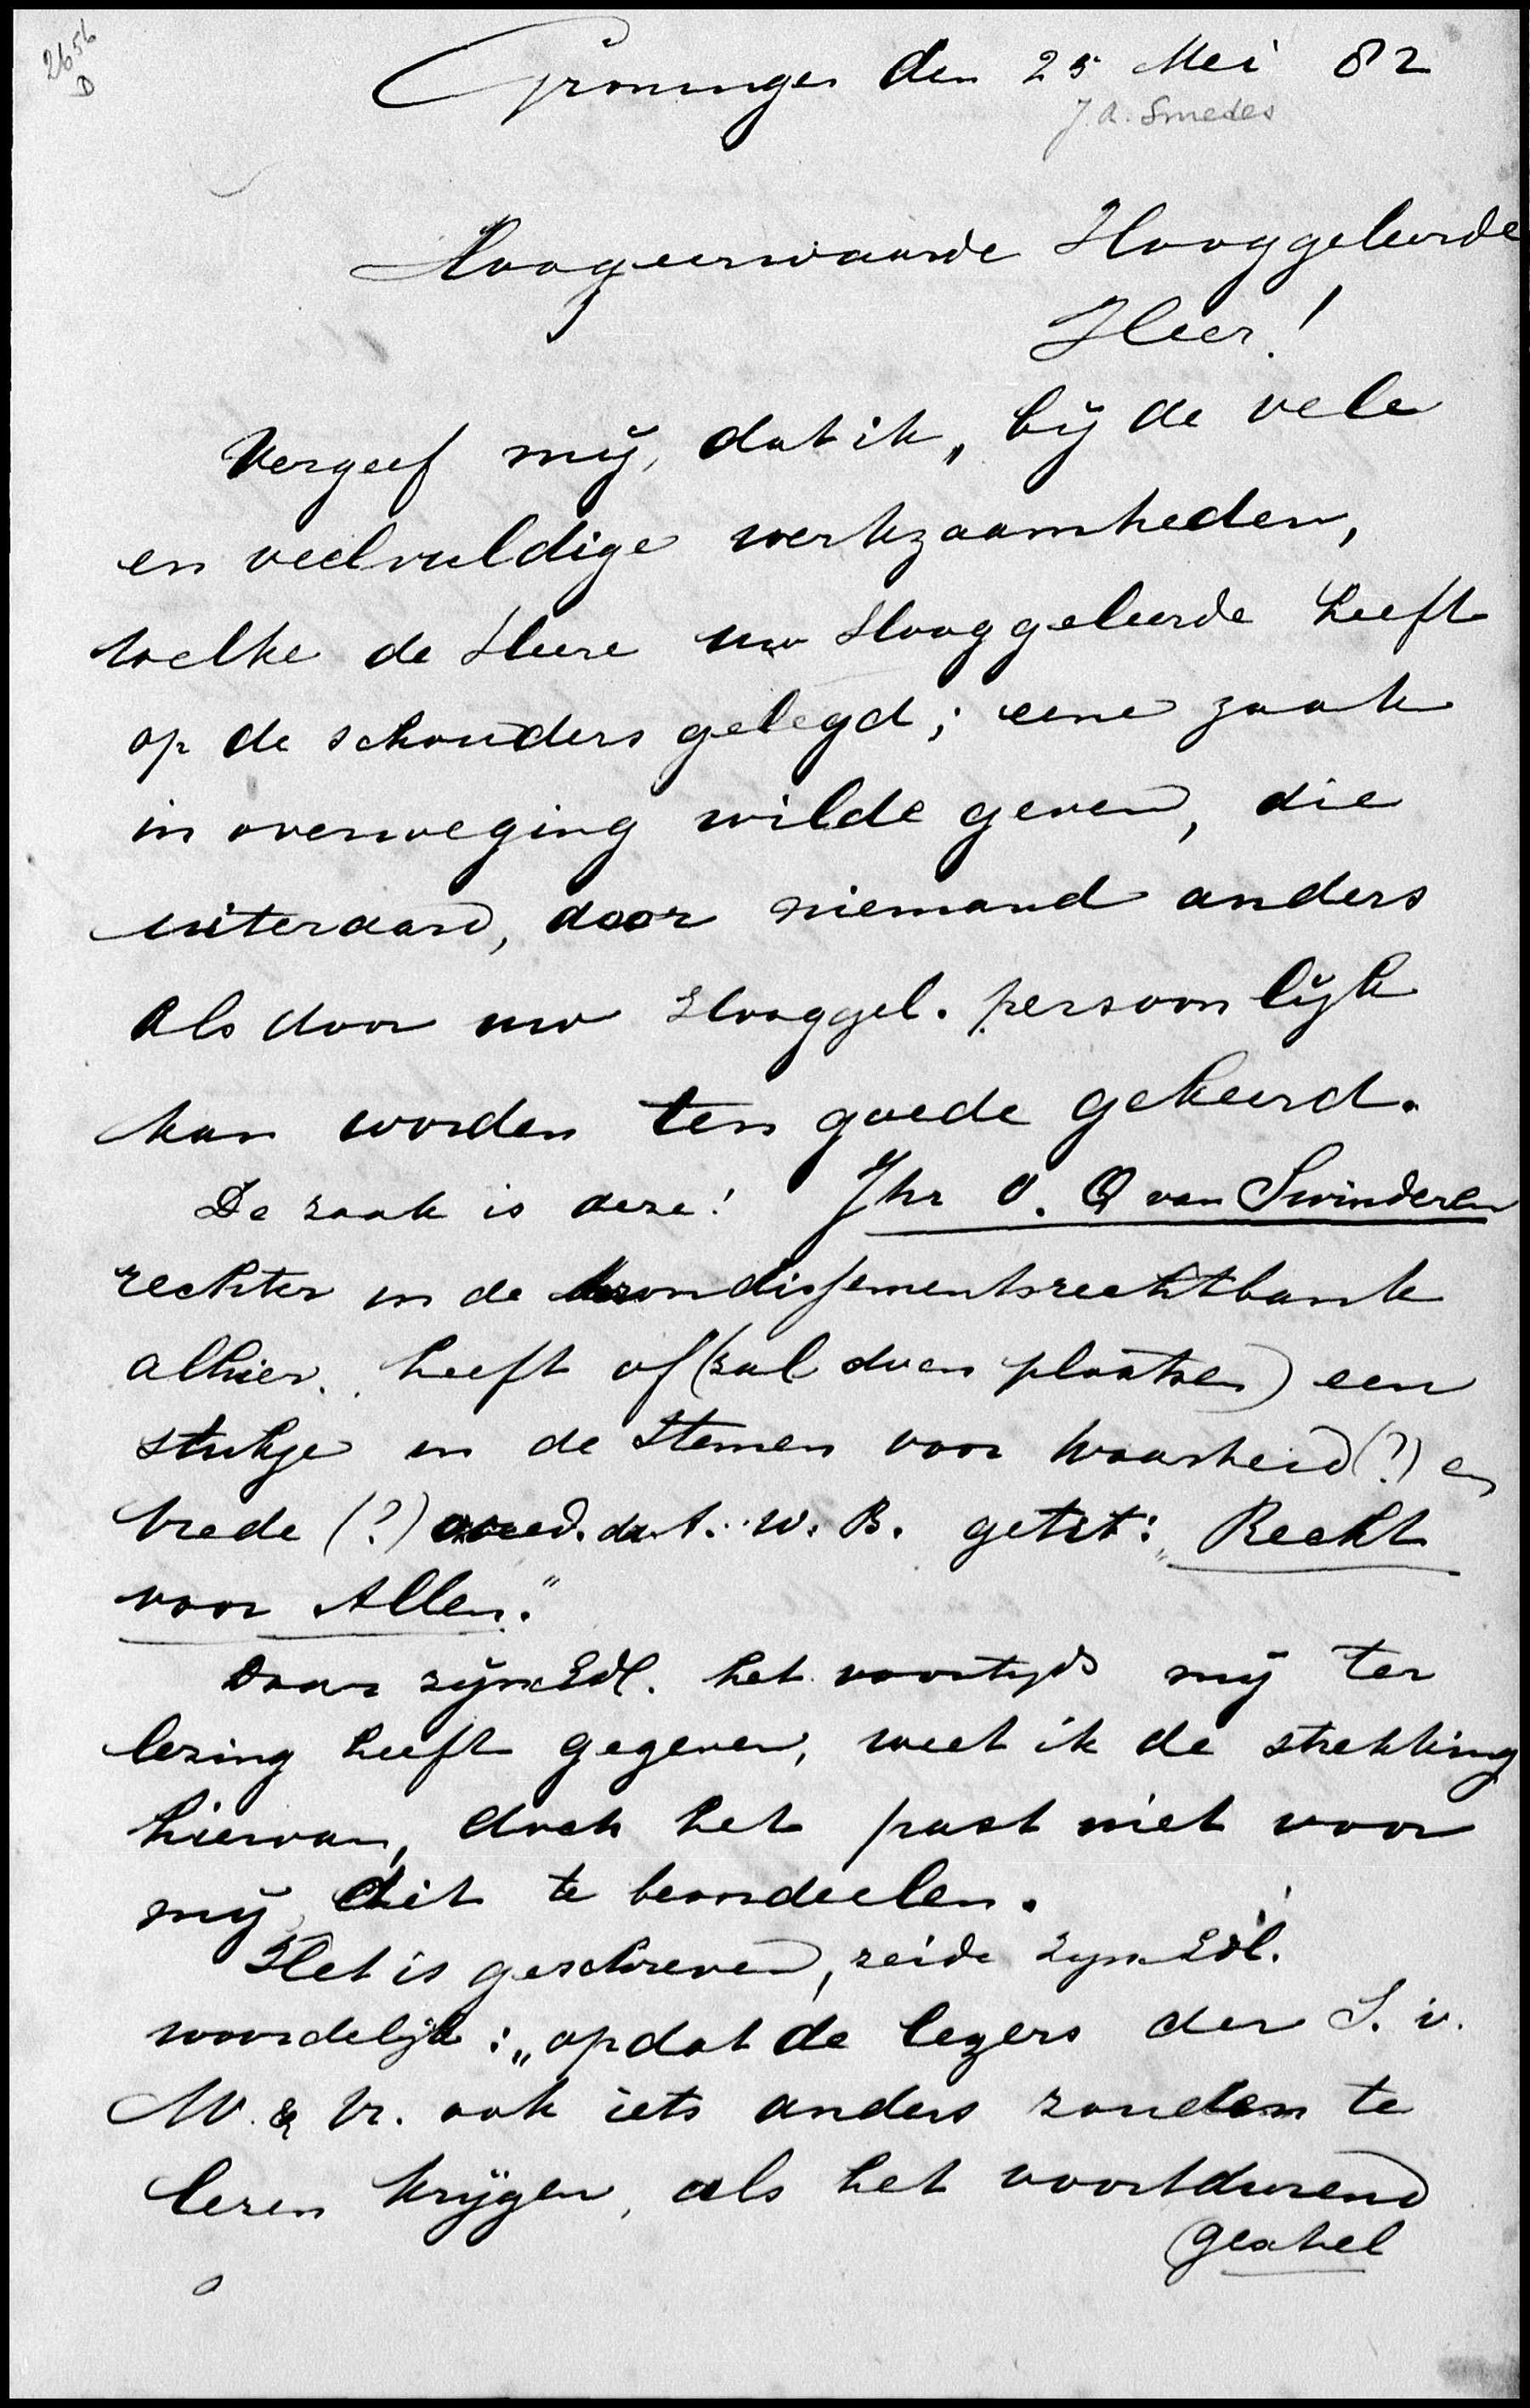 2656
D
Groningen den 25 Mei 82
J. A. Smedes
Hoogeerwaarde Hooggeleerde
Heer!
Vergeef mij, dat ik, bij de vele
en veelvuldige werkzaamheden,
welke de Heere uw Hooggeleerde heeft
op de schouders gelegd; eene zaak
in overweging wilde geven, die
uiteraard, door niemand anders
als door uw Hooggel. persoonlijk
kan worden ten goede gekeerd.
De zaak is deze! Jhr O. Q van Swinderen
rechter in de arrondissementsrechtbank
alhier. heeft of (zal doen plaatsen) een
stukje in de Stemen voor Waarheid (?) en
Vrede (?) W. B. getit: „Recht
voor Allen."
Daar zijn Edl. het voortijds mij ter
lezing heeft gegeven, weet ik de strekking
hiervan, doch het past niet voor
mij dit te beoordeelen.
Het is geschreven, zeide zijn Edl.
woordelijk: „opdat de lezers der S. v.
W. & Vr. ook iets anders zouden te
lezen krijgen, als het voortdurend
gezakel